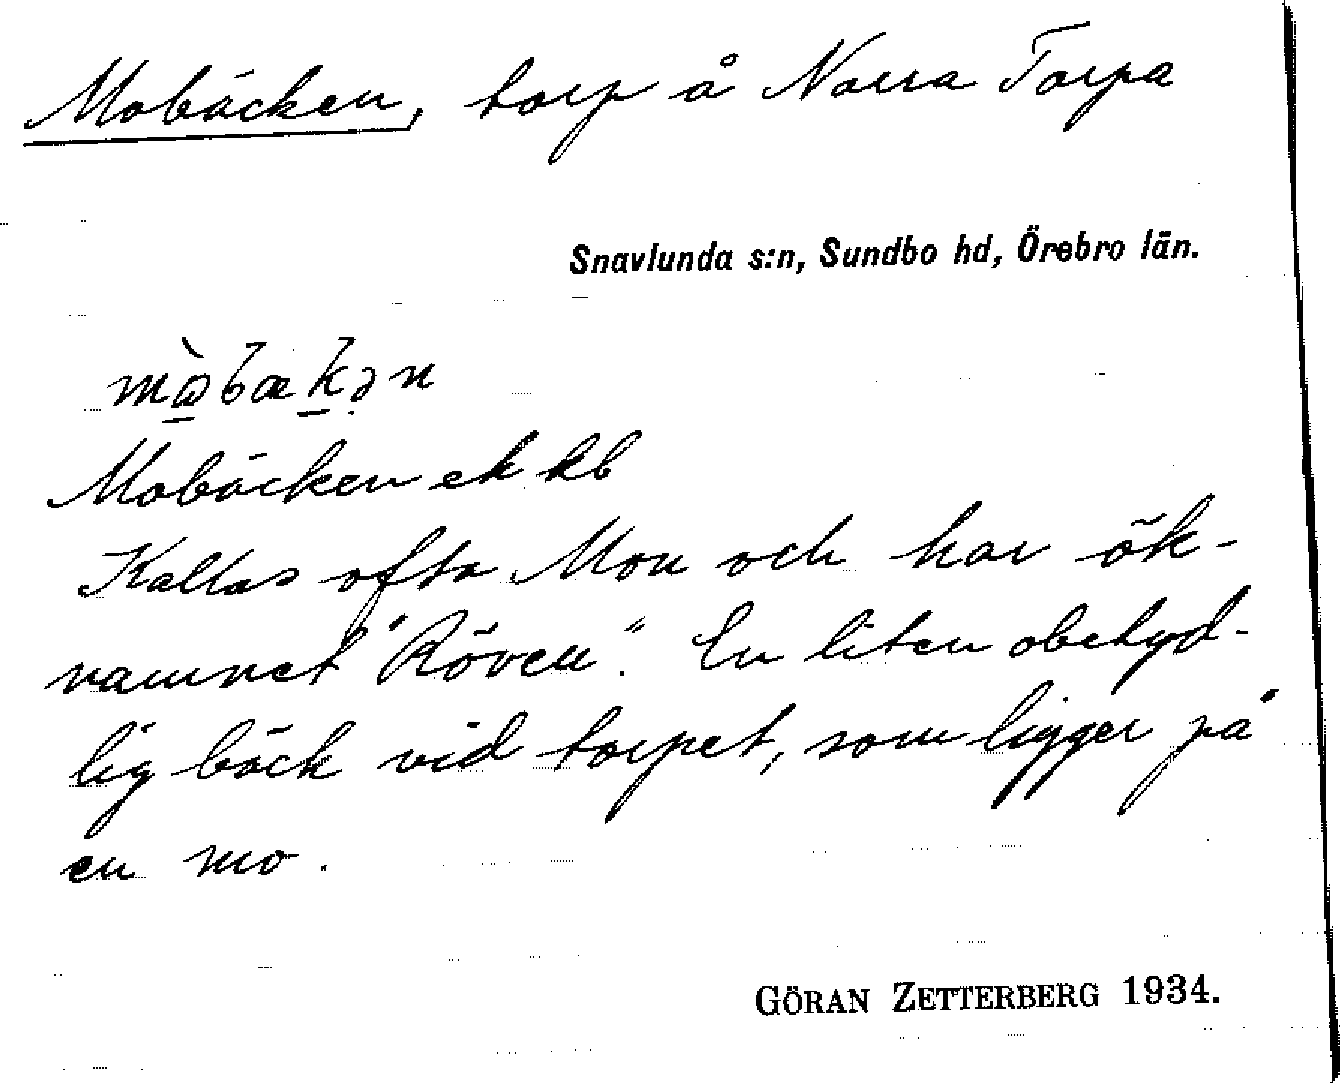 Mobäcken, torp å Norra Torpa
Snavlunda s:n, Sundbo hd, Örebro län.
mὼbækən
Mobäcken ek kb
Kallas ofta Mon och har ök-
namnet "Röven". En liten obetyd-
lig bäck vid torpet, som ligger på
en mo.
GÖRAN ZETTERBERG 1934.